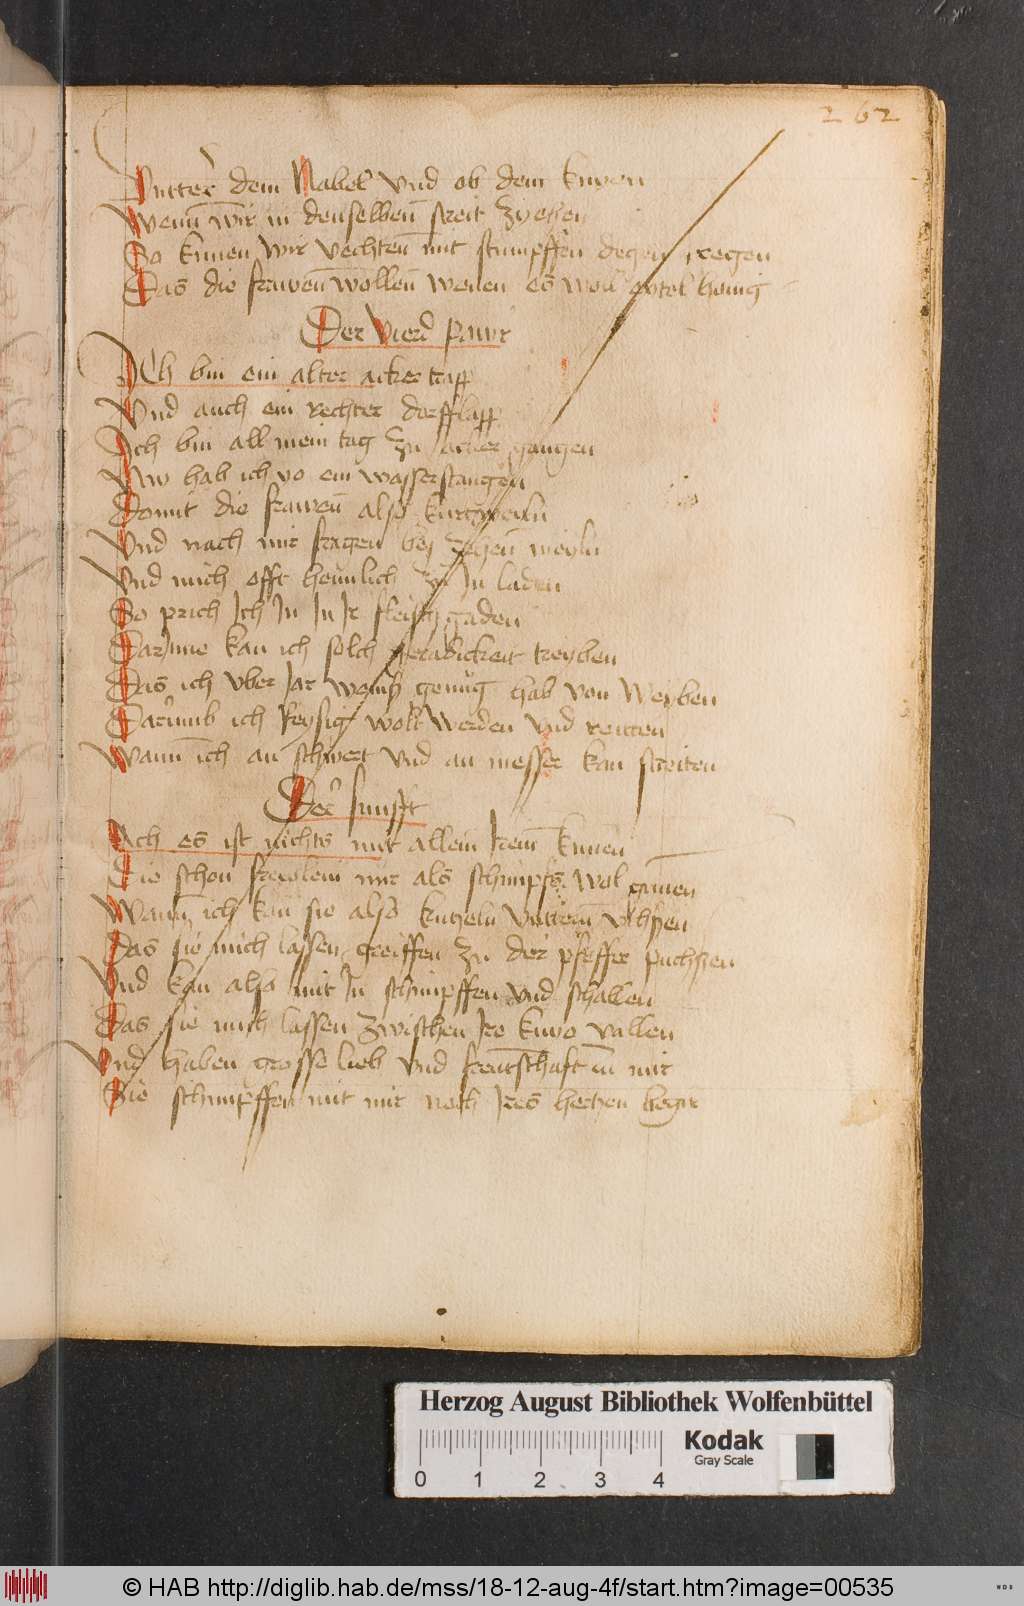 262
Vntter dem Nabel vnd ob dem knyen
Wenn wir in denselben streit zyehen
So kunen wir vechten mit stumpffen degen
Das die frawen wollen wenen es woll eyttel honig regen
Der vierd pawr
Ich bin ein alter acker trapp
Vnd auch ein rechter dorfflapp
Ich bin all mein tag zu acker gangen
Nw hab ich vo ein wasserstangen
Domit die frawen also kurtzweiln
Vnd nach mir fragen bey zehen meyln
Vnd mich offt heimlich zu In laden
So prich Ich In In Ir fleischgaden
Darynne kan ich solch geradickeit treyben
Das ich vber Jar genug hab von Weyben
Darumb ich Reysig woll werden vnd reitten
Wann ich an schwert vnd an messer kan streiten
Der funfft
Ach es ist nichts mit allem Irem kunen
Die schon frewlein mir als schimpfs wol gunnen
Wann ich kan sie also kutzeln vnttern vchsen
Das sie mich lassen greiffen zu der pfeffer puchssen
Vnd kan also mit In schimpffen vnd schallen
Das sie mich lassen zwischen Ire knye vallen
Vnd haben grosse lieb vnd frewntschafft in mir
Sie schimpffen mit mir nach Ires hertzen begir
Herzog August Bibliothek Wolfenbüttel
Kodak
Gray Scale
0 1 2 3 4
© HAB http://diglib.hab.de/mss/18-12-aug-4f/start.htm?image=00535